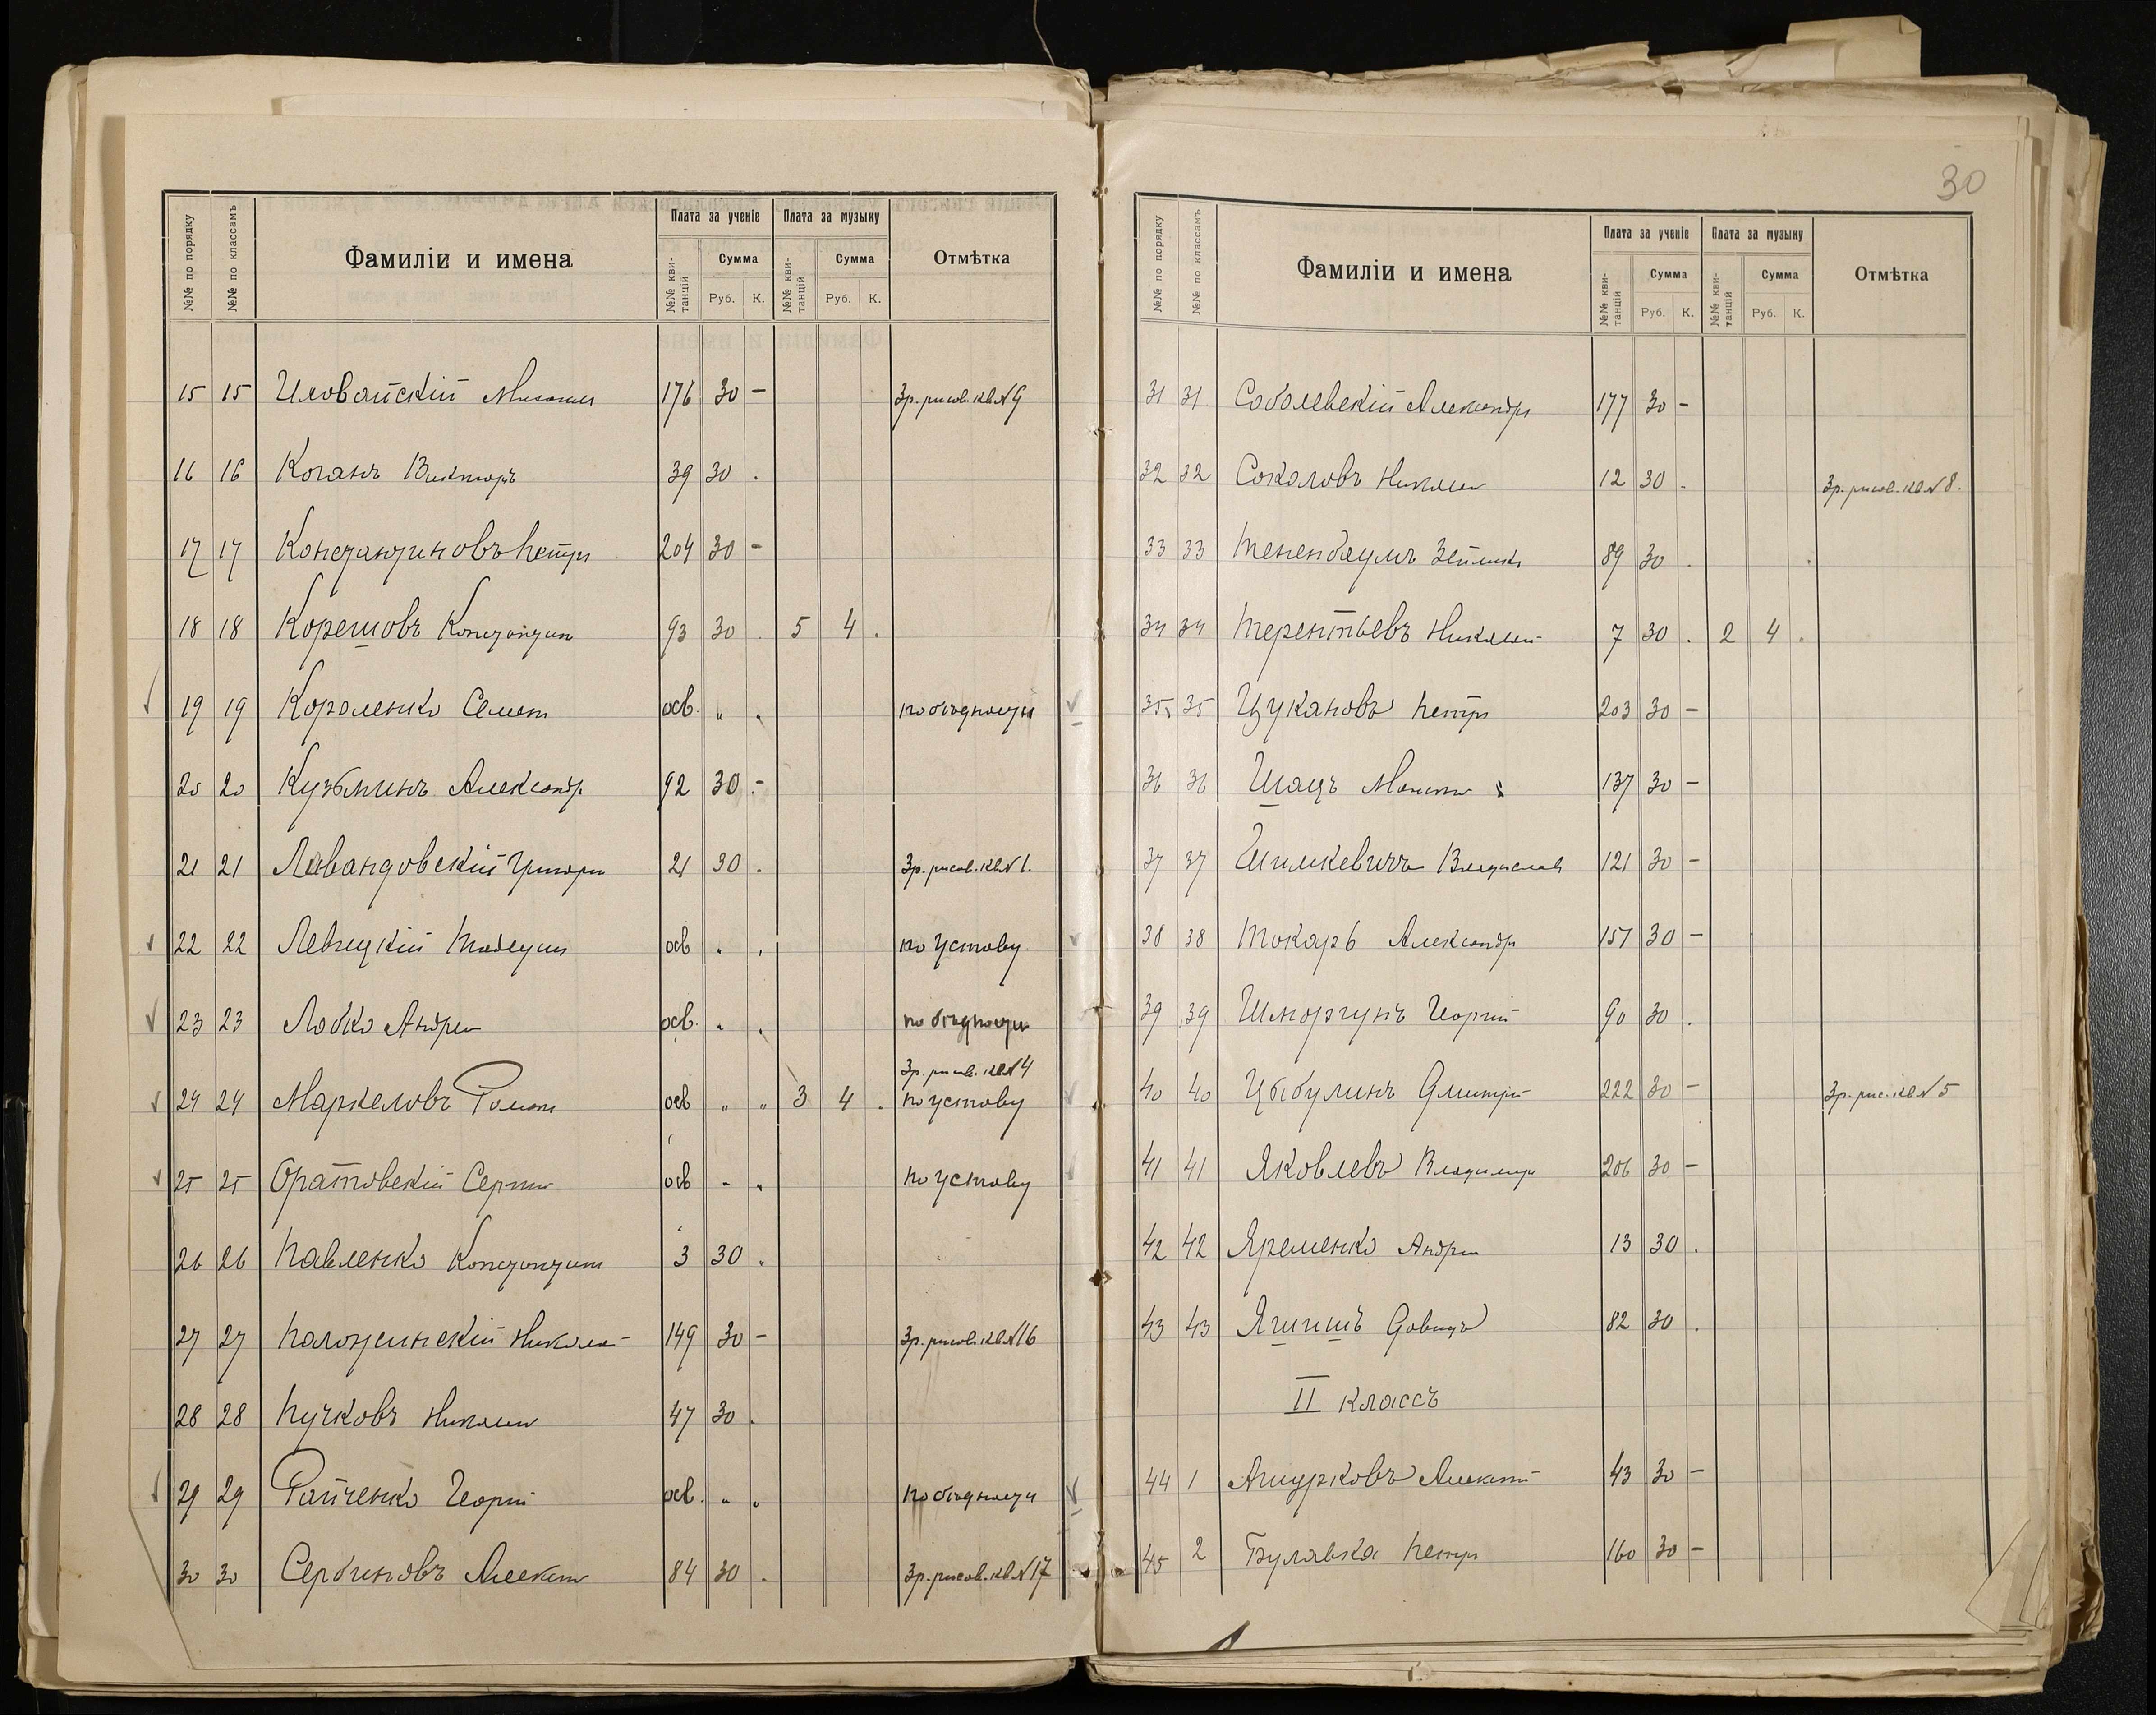 №№ по порядку №№ по классамъ Фамиліи и имена Плата за ученіе Плата за музыку Отмѣтка
№№ квитанцій Сумма №№ квитанцій Сумма
Руб. К. Руб. К.
15 15 Иловайскій Михаилъ 176 30 - 3 р. рисов. кв № 9
16 16 Коганъ Викторъ 39 30 .
17 17 Константиновъ Петръ 204 30 -
18 18 Корешовъ Константин 93 30 . 5 4 .
19 19 Короленко Семен осв. „ „ по бѣдности
20 20 Кузьминъ Александр 92 30 . -
21 21 Левандовскій Григори 21 30 . 3 р. рисов. кв № 1.
22 22 Левицкій осв „ „ по уставу
23 23 Лобко Андрей осв. „ „ по бѣдности
3 р. рисов. кв № 4
24 24 Маркеловъ Роман осв „ „ 3 4 . по уставу
25 25 Оратовскій Сергей осв „ „ по уставу
26 26 Павленко Константин 3 30 .
27 27 Положинскій Николай 149 30 - 3 р. рисов. кв № 16
28 28 Пучковъ Николай 47 30 .
29 29 Райченко Георгій осв. „ „ по бѣдности
30 30 Сербиновъ Алексей 84 30 . 3 р. рисов. кв № 17
30
№№ по порядку №№ по классамъ Фамиліи и имена Плата за ученіе Плата за музыку Отмѣтка
№№ квитанцій Сумма №№ квитанцій Сумма
Руб. К. Руб. К.
31 31 Соболевскій Александръ 177 30 -
32 32 Соколовъ Николай 12 30 . 3 р. рисов. кв № 8.
33 33 Тененбаумъ Зейликъ 89 30 .
34 34 Терентьевъ Николай 7 30 . 2 4 .
35 35 Цукановъ Петръ 203 30 -
36 36 Шацъ 137 30 -
37 37 Шимкевичъ Владислав 121 30 -
38 38 Токарь Александр 157 30 -
39 39 Шморгунъ Георгій 90 30 .
40 40 Цыбулинъ Дмитрій 222 30 - 3 р. рис. кв № 5
41 41 Яковлевъ Владимир 206 30 -
42 42 Яременко Андрей 13 30 .
43 43 Давидъ 82 30 .
II классъ
44 1 Ашурковъ Алексей 43 30 -
45 2 Булавка Петръ 160 30 -